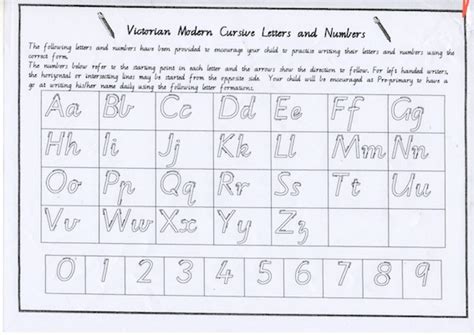 Victorian Modern Cursive Letters and Numbers
The following letters and numbers have been provided to encourage your child to practice writing their letters and numbers using the
correct form.
The numbers below refer to the starting point in each letter and the arrows show the direction to follow. For left handed writers,
the horizontal or intersecting lines may be started from the opposite side. Your child will be encouraged at Pre-primary to have a
go at writing his/her name daily using the following letter formations.
Aa Bb Cc Dd Ee Ff Gg
Hh Ii Jj Kk Ll Mm Nn
Oo Pp Qq Rr Ss Tt Uu
Vv Ww Xx Yy Zz
0 1 2 3 4 5 6 7 8 9